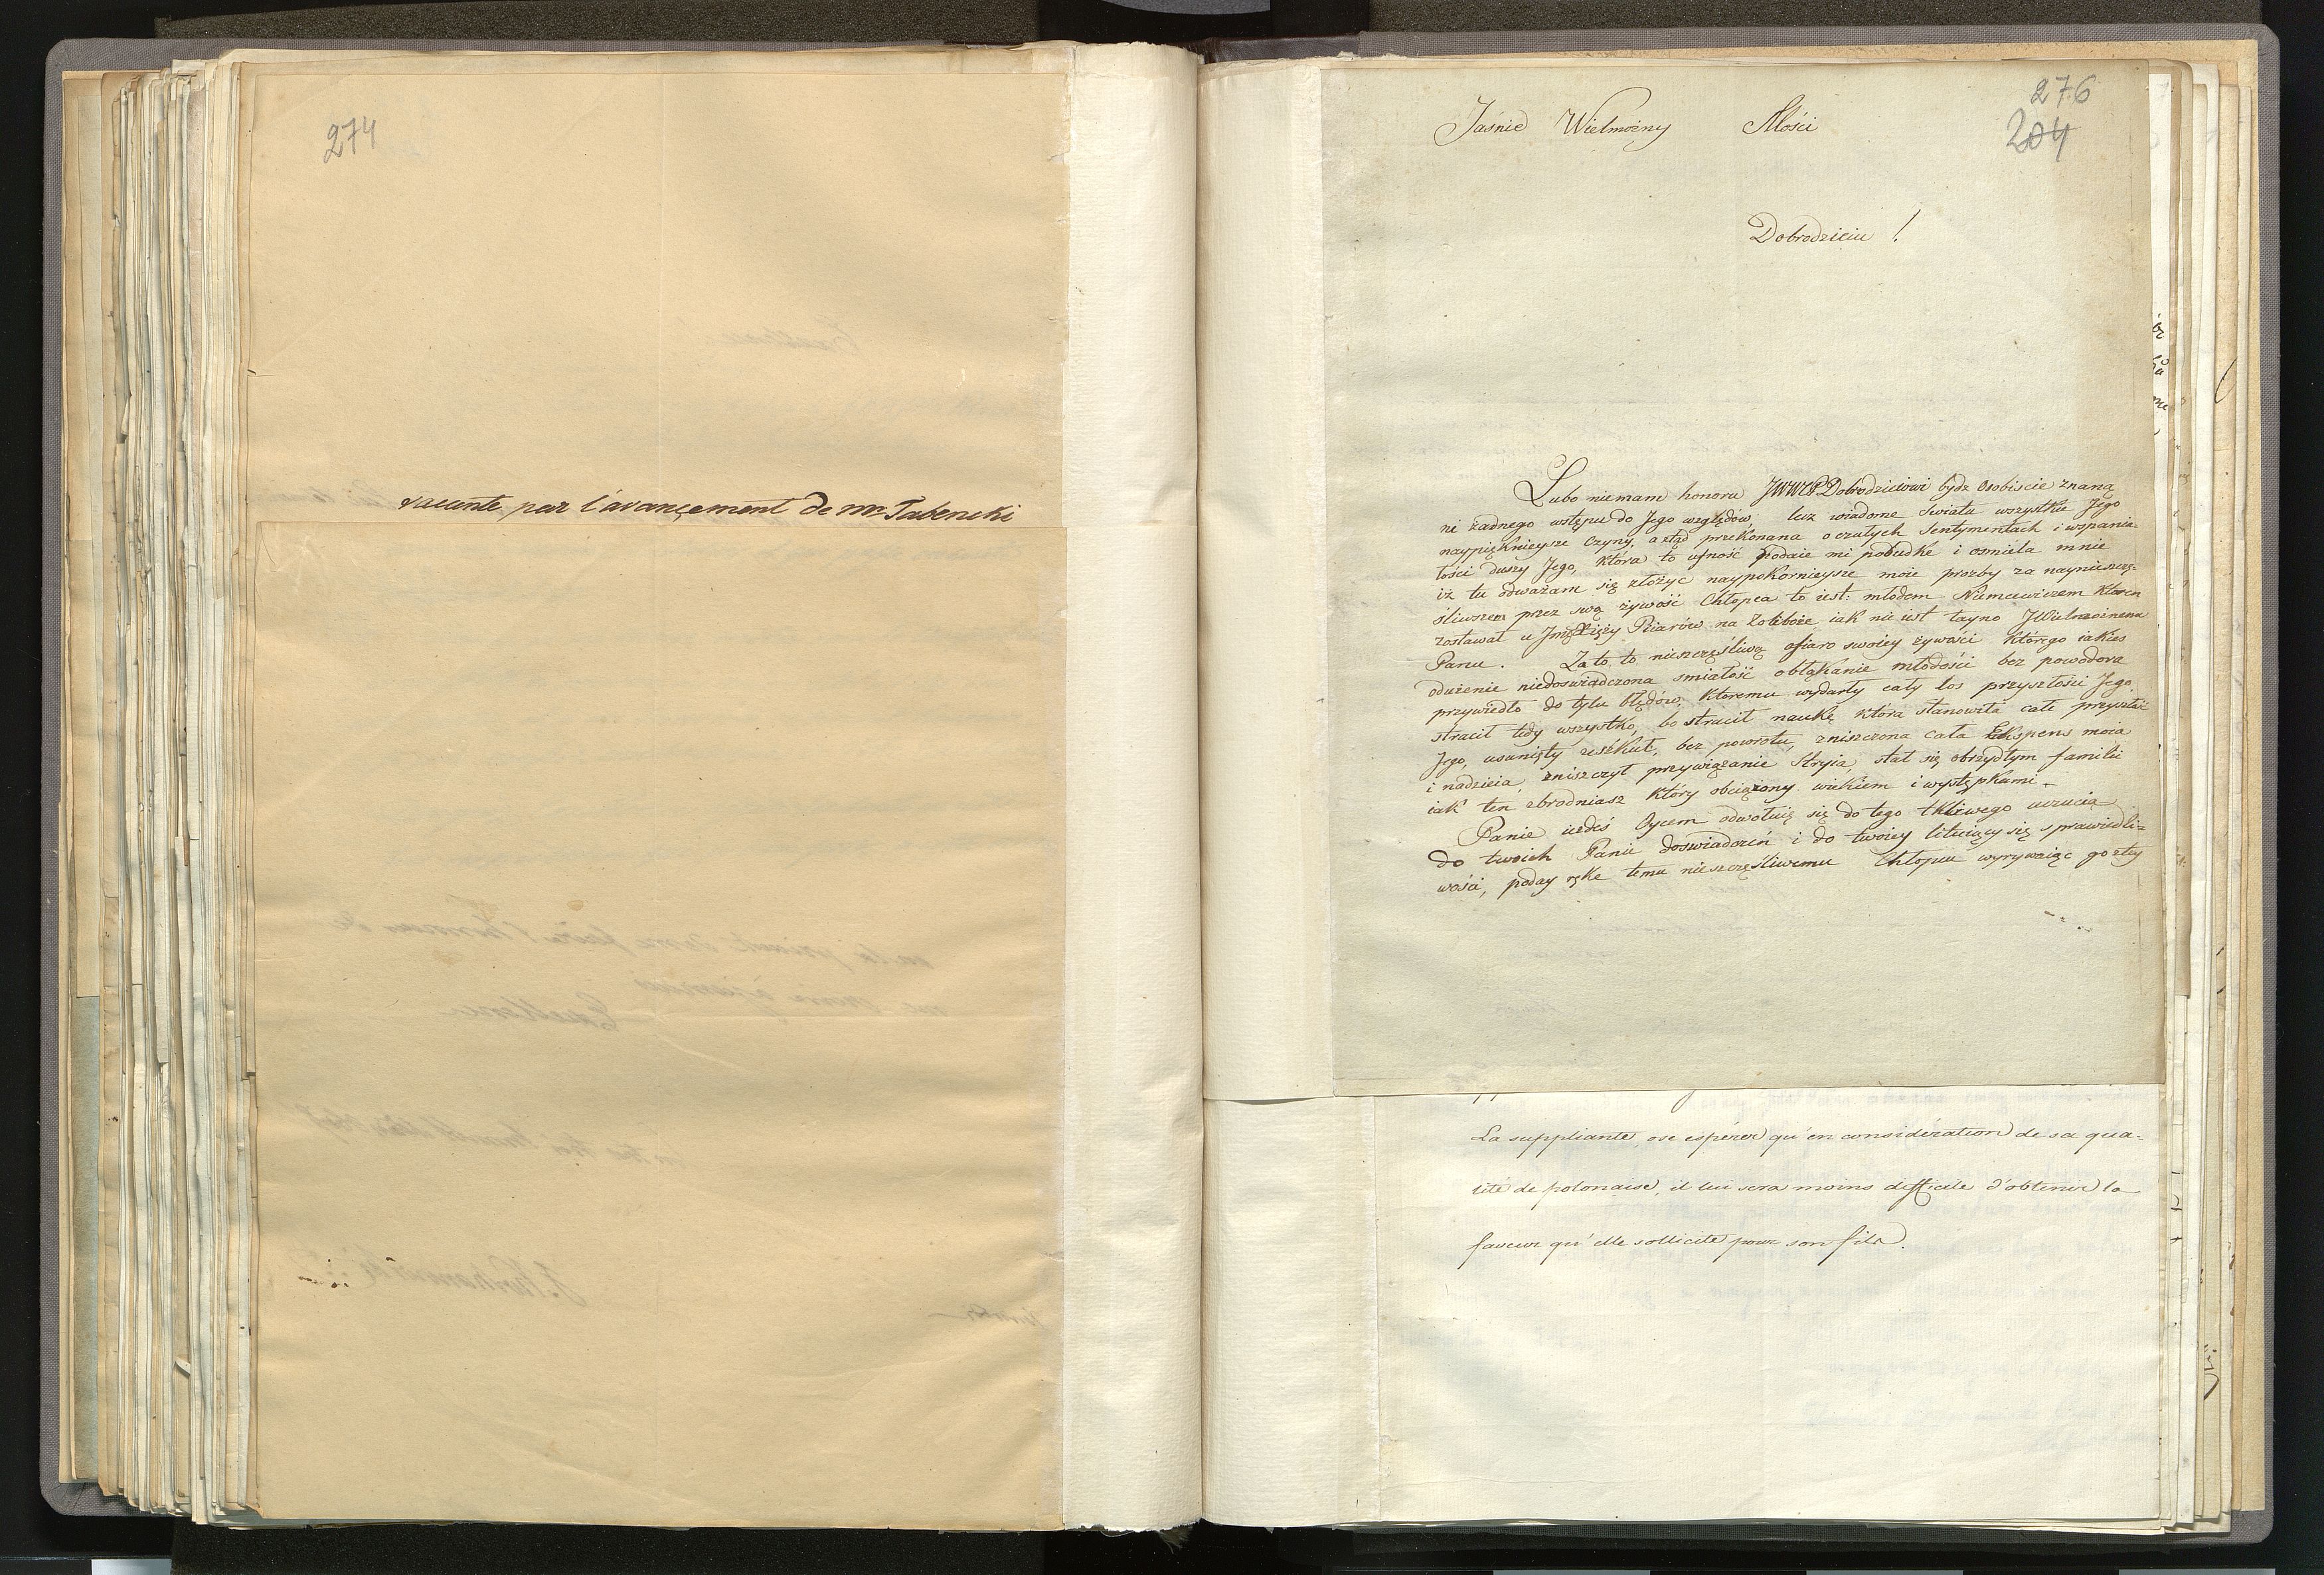 274
vacante par l'avançement de mr Tabencki
276
204
Jaśnie Wielmożny Mości
Dobrodzieiu !
Lubo niemam honoru JWWPDobrodzieiowi bydz Osobiscie znaną
ni żadnego wstępu do Jego względów, lecz wiadome Swiatu wszystkie Jego
naypięknieysze Czyny, a ztąd przekonana o czułych Sentymentach i wspania-
łości duszy Jego, która to ufność podaie mi pobudke i osmiela mnie
iż tu odważam się złożyc naypokornieysze moie prozby za naynieszczę-
śliwszem przez swą żywość Chłopca to iest: młodem Niemcewiczem ktoren
zostawał u Xięży Piarów na Zolibożę iak nie iest tayno JWielmożnemu
Panu. Za to, to nieszczęśliwą ofiaro swoiey żywości którego iakies
odużenie niedoswiadczona smiałość obłąkanie młodości bez powodora
przywiedło do tylu błędów, któremu wydarty cały los przyszłości Jego
stracił tedy wszystko, bo stracił naukę która stanowiła całe przyszłość
Jego, usunięty ze szkuł, bez powrotu, zniszczona cała Ekspens moia
i nadzieia, zniszczył przywiązanie Stryia, stał się obrzydłym familii
iak ten zbrodniasz który obciążony wiekiem i występkami.
Panie iedeś Oycem odwołuię się do tego tkliwego uczucia
do twoich Panie doswiadczeń i do twoiey lituiący się sprawiedli=
wości, poday rękę temu nieszczęśliwemu Chłopcu wyrywaiąc go ztey
La suppliante, ose espérer qu'en considération de sa qua=
lité de polonaise, il lui sera moins difficile d'obtenir la
faveur qu'elle sollicite pour son fils.